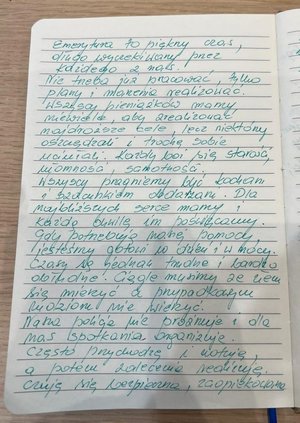 Emerytura to piękny czas,
długo wyczekiwany przez
każdego z nas.
Nie trzeba już pracować, tylko
plany i marzenia realizować.
Wszyscy pieniążków mamy
niewiele, aby zrealizować
najdroższe cele, lecz niektórzy
oszczędzali i trochę sobie
uciułali. Każdy boi się starości,
ułomności, samotności.
Wszyscy pragniemy być kochani
i szacunkiem obdarzani. Dla
najbliższych serce mamy i
każdą chwilę im poświęcamy.
Gdy potrzebują naszej pomocy,
jesteśmy gotowi w dzień i w nocy.
Czasy są jednak trudne i bardzo
obłudne. Ciągle musimy ze wsz
się mierzyć i przypadkowym
ludziom nie wierzyć.
Nasza policja nie próżnuje i dla
nas spotkania organizuje.
Często przychodzą i
a potem zalecenia
czują się bezpieczna, zaopiekowana